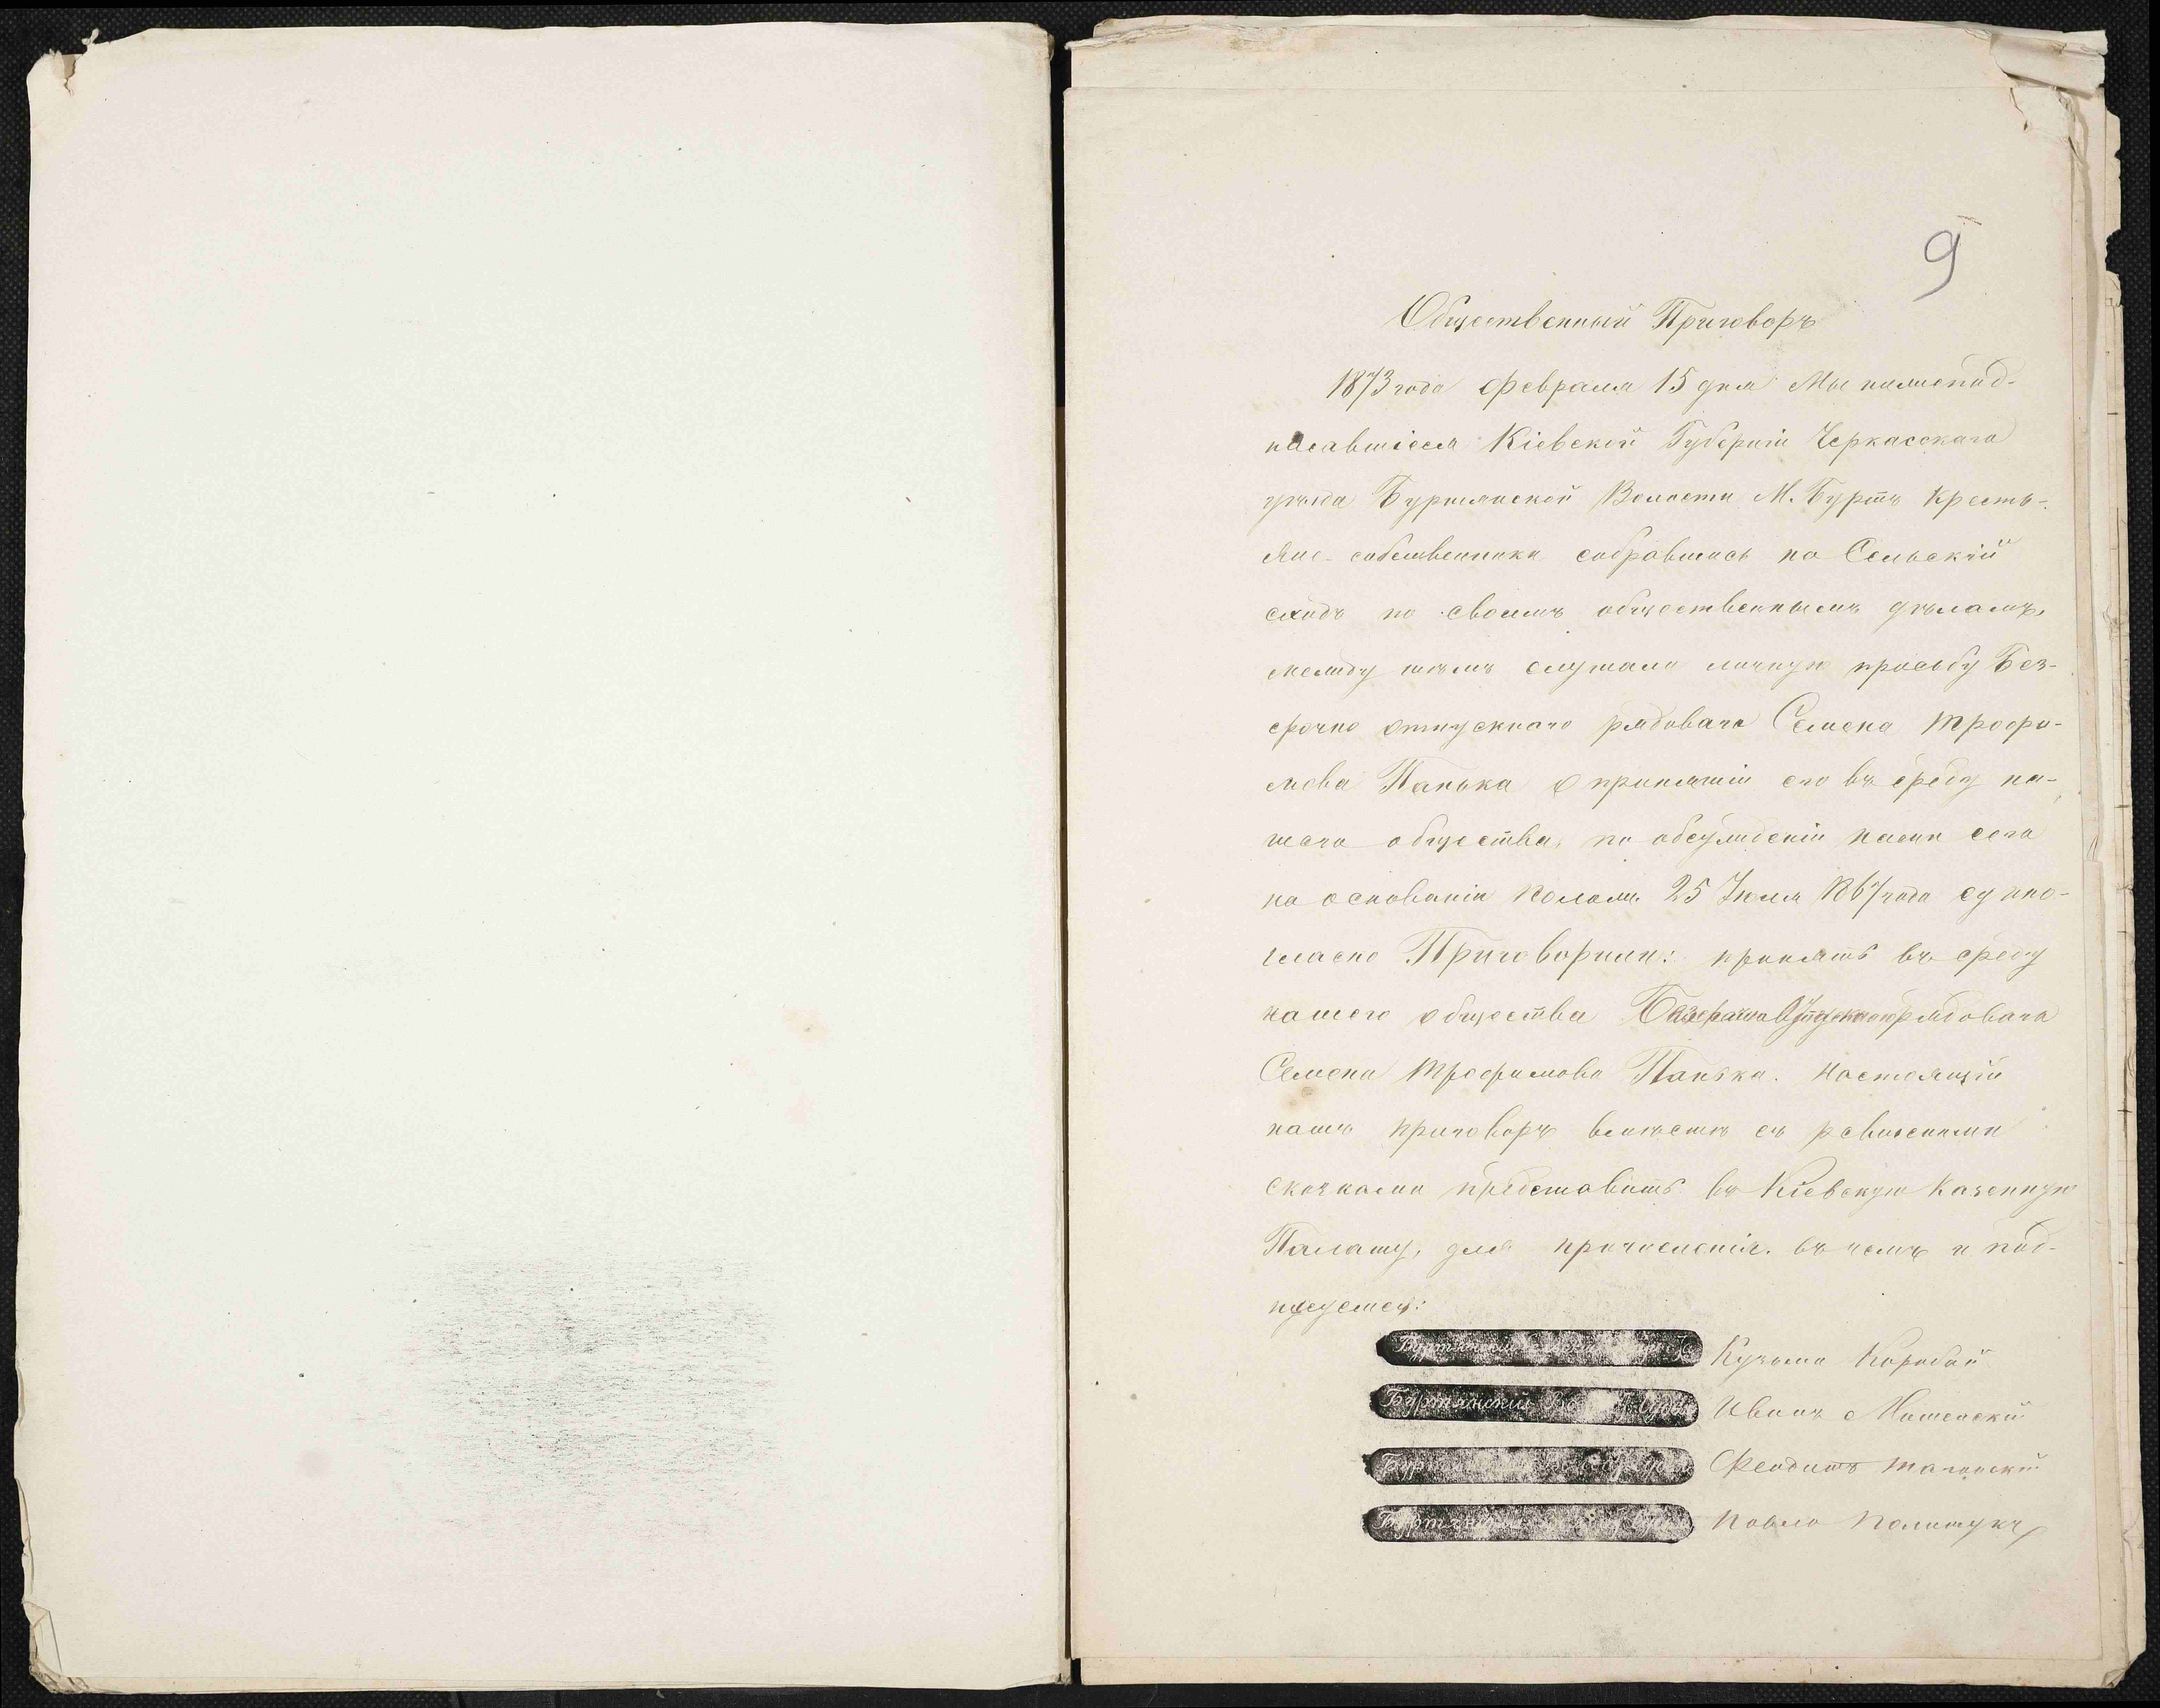 9
Общественный Приговоръ
1873 года Февраля 15 дня Мы нижепод-
писавшіеся Кіевской Губерніи Черкасскаго
уѣзда Буртянской Волости М. Буртъ кресть-
яне-собственники собравшись на Сельскій
сходъ по своимъ общественнымъ дѣламъ,
между тѣмъ слушали личную прозьбу Без-
срочно отпускнаго рядоваго Семена Трофи-
мова Панька о принятіи его въ среду на-
шего общества, по обсужденіи нами сего
на основаніи Полож. 25 Іюля 1867 года едино-
гласно Приговорили: принять въ среду
нашего общества Безсрочноотпускного рядоваго
Семена Трофимова Панька. Настоящій
нашъ приговоръ вмѣстѣ съ ревизскими
сказками представить въ Кіевскую Казенную
Палату, для причисленія. въ чемъ и под-
писуемся:
Кузьма Коробай
Буртянский Иванъ
Феодитъ
Павло Полищукъ